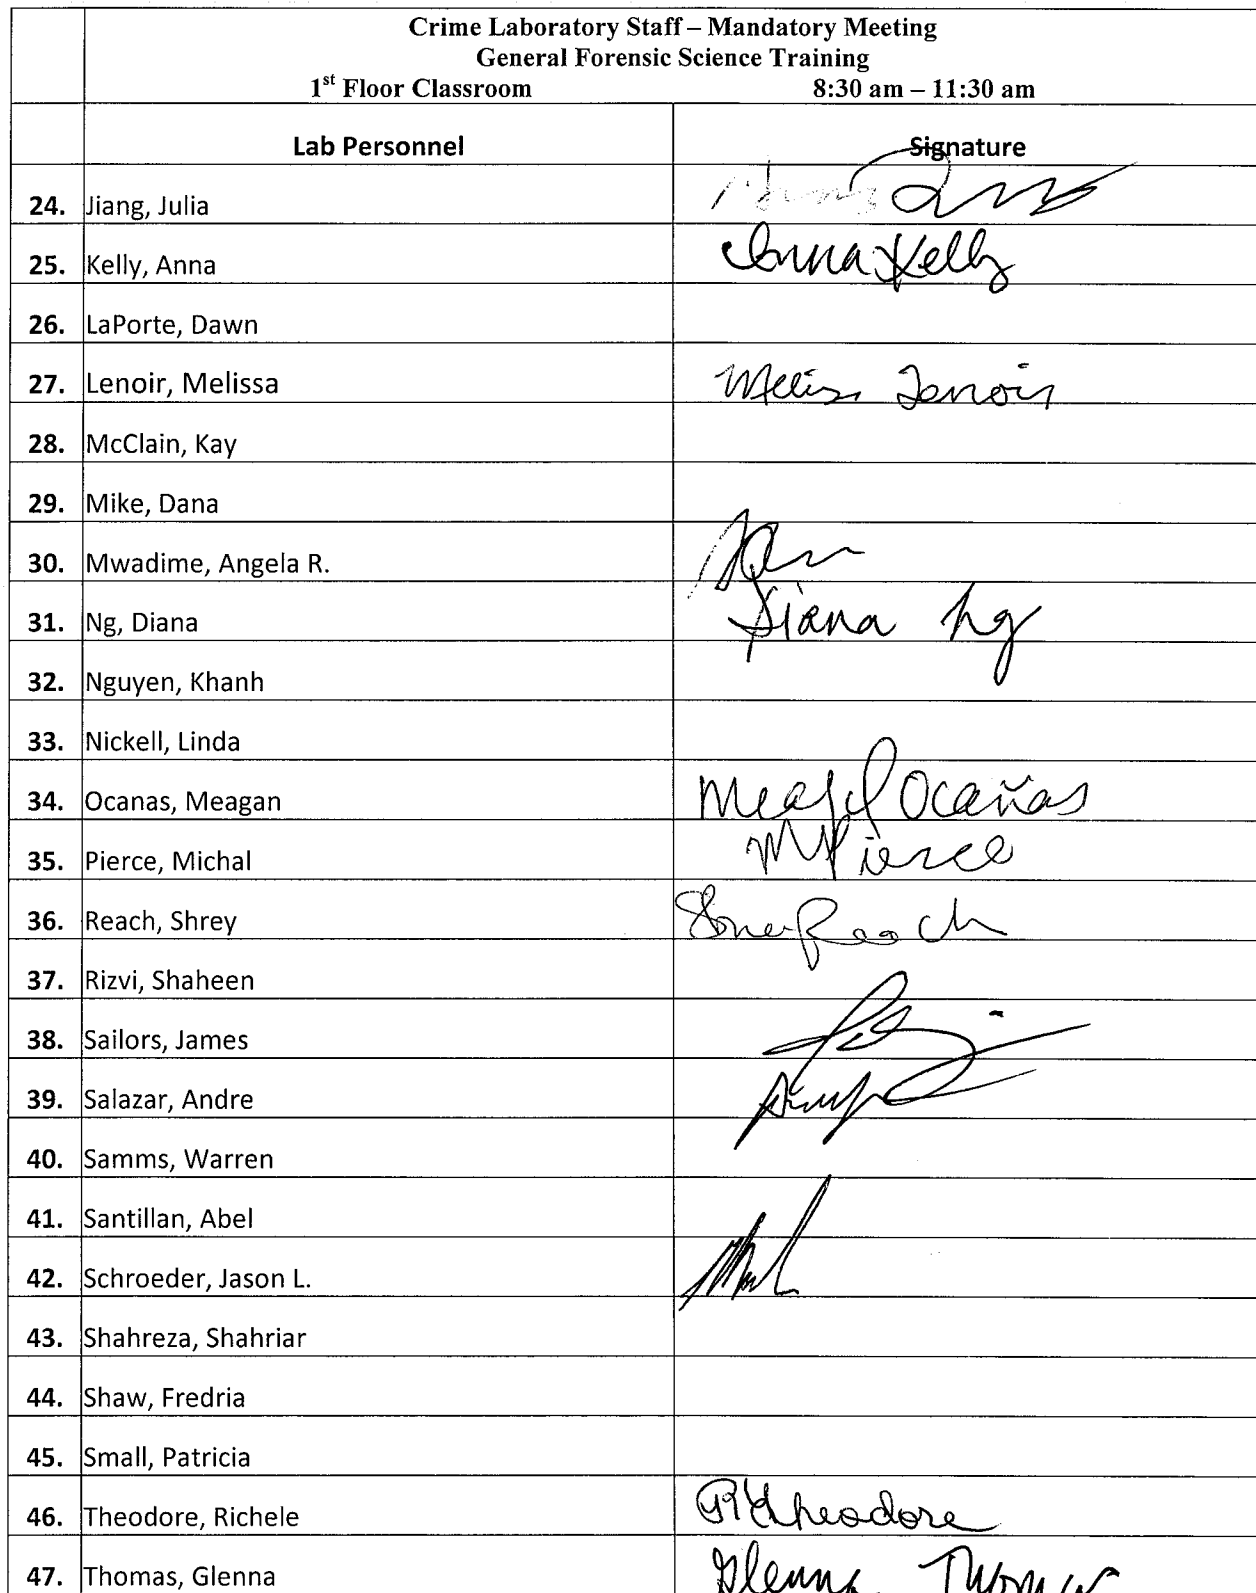 Crime Laboratory Staff – Mandatory Meeting
General Forensic Science Training
1st Floor Classroom 8:30 am – 11:30 am
Lab Personnel Signature
24. Jiang, Julia
25. Kelly, Anna Anna Kelly
26. LaPorte, Dawn
27. Lenoir, Melissa Lenoir
28. McClain, Kay
29. Mike, Dana
30. Mwadime, Angela R.
31. Ng, Diana Diana Ng
32. Nguyen, Khanh
33. Nickell, Linda
34. Ocanas, Meagan Ocañas
35. Pierce, Michal MPierce
36. Reach, Shrey Reach
37. Rizvi, Shaheen
38. Sailors, James
39. Salazar, Andre
40. Samms, Warren
41. Santillan, Abel
42. Schroeder, Jason L.
43. Shahreza, Shahriar
44. Shaw, Fredria
45. Small, Patricia
46. Theodore, Richele Theodore
47. Thomas, Glenna Glenna Thomas